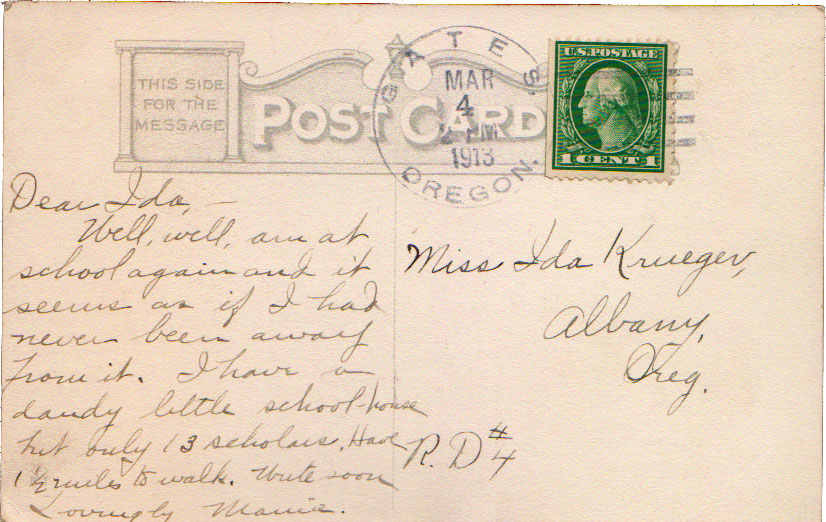 THIS SIDE
FOR THE
MESSAGE
POST CARD
GATES.
MAR
4
PM
1913
OREGON.
U.S. POSTAGE
1 CENT 1
Dear Ida, –
Well, well, am at
school again and it
seems as if I had
never been away
from it. I have a
dandy little school-house
but only 13 scholars. Have
1 1/2 miles to walk. Write soon
Lovingly Mamie.
Miss Ida Krueger,
Albany,
Oreg.
R.D #4